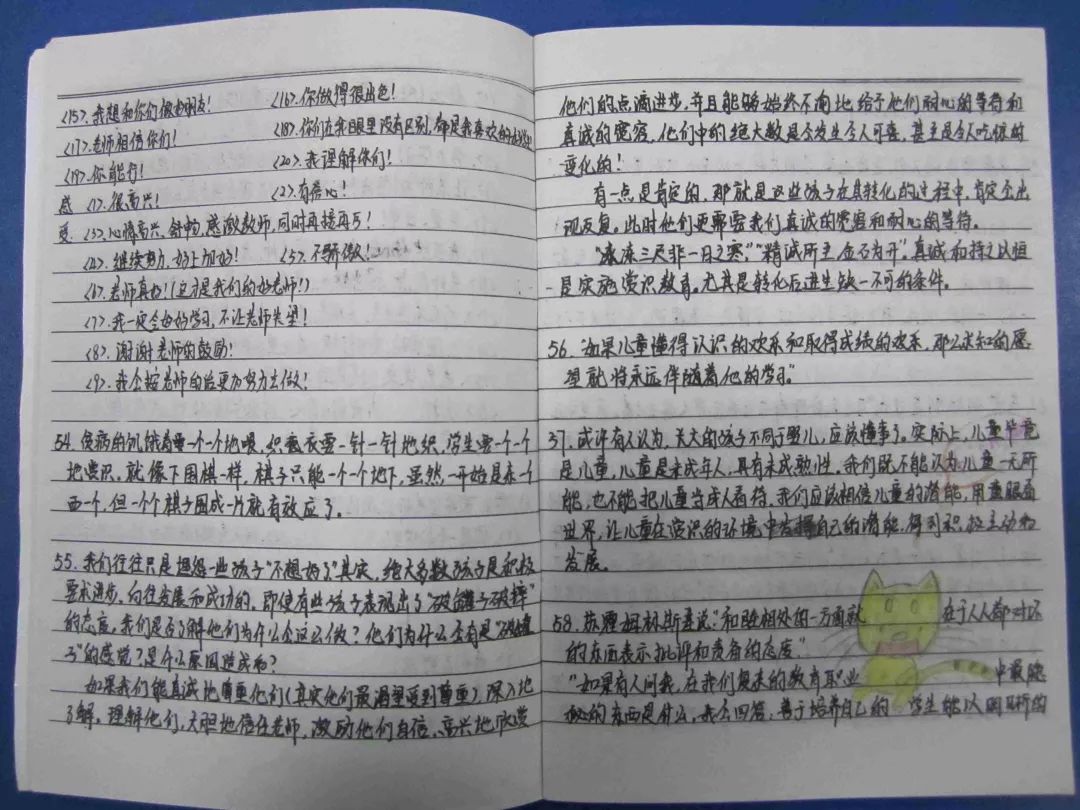 <15>. 我想和你们做好朋友! <16>. 你做得很出色!
<17>. 老师相信你们! <18>. 你们在我眼里没有区别, 都是我喜欢的
<19>. 你能行! <20>. 我理解你们!
感 <1>. 很高兴! <2>. 有信心!
受: <3>. 心情高兴、舒畅, 感激教师, 同时再接再厉!
<4>. 继续努力、好上加好! <5>. 不骄傲!
<6>. 老师真好! (这才是我们的好老师!)
<7>. 我一定会好好学习, 不让老师失望!
<8>. 谢谢老师的鼓励!
<9>. 我会按老师的话更加努力去做!
54. 食病的饥饿者要一个一个地喂, 织衣要一针一针地织, 学生要一个一个
地赏识。就像下围棋一样, 棋子只能一个一个地下, 虽然一开始是东一个
西一个, 但一个个棋子围成一片就有效应了。
55. 我们往往只是埋怨一些孩子"不想好了"其实, 绝大多数孩子是积极
要求进步、向往发展和成功的, 即使有些孩子表现出了"破罐子破摔"
的态度, 我们是否了解他们为什么会这么做? 他们为什么会有是"
了"的感觉? 是什么原因造成的?
如果我们能真诚地尊重他们(其实他们最渴望受到尊重), 深入地
了解、理解他们, 大胆地信任老师, 激励他们自信、高兴地欣赏
他们的点滴进步, 并且能够始终不渝地给予他们耐心的等待和
真诚的宽容, 他们中的绝大数是会发生令人可喜、甚至是令人吃惊的
变化的!
有一点是肯定的, 那就是这些孩子在其转化的过程中, 肯定会出
现反复。此时他们更需要我们真诚的宽容和耐心的等待。
"冰冻三尺非一日之寒," "精诚所至, 金石为开"。真诚和持之以恒
是实施赏识教育。尤其是转化后进生缺一不可的条件。
56. "如果儿童懂得认识的欢乐和取得成绩的欢乐, 那么求知的愿
望就将永远伴随着他的学习。"
57. 或许有人认为, 长大的孩子不同于婴儿, 应该懂事了。实际上, 儿童毕竟
是儿童, 儿童是未成年人, 具有未成熟性。我们既不能认为儿童一无所
能, 也不能把儿童当成人看待, 我们应该相信儿童的潜能, 用童眼看
世界, 让儿童在赏识的环境中发挥自己的潜能, 得到积极主动的
发展。
58. 苏霍姆林斯基说: "和睦相处的一方面就 在于人人都对坏
的东西表示批评和责备的态度"
"如果有人问我, 在我们复杂的教育职业 中最
的东西是什么, 我会回答, 善于培养自己的 学生能以的